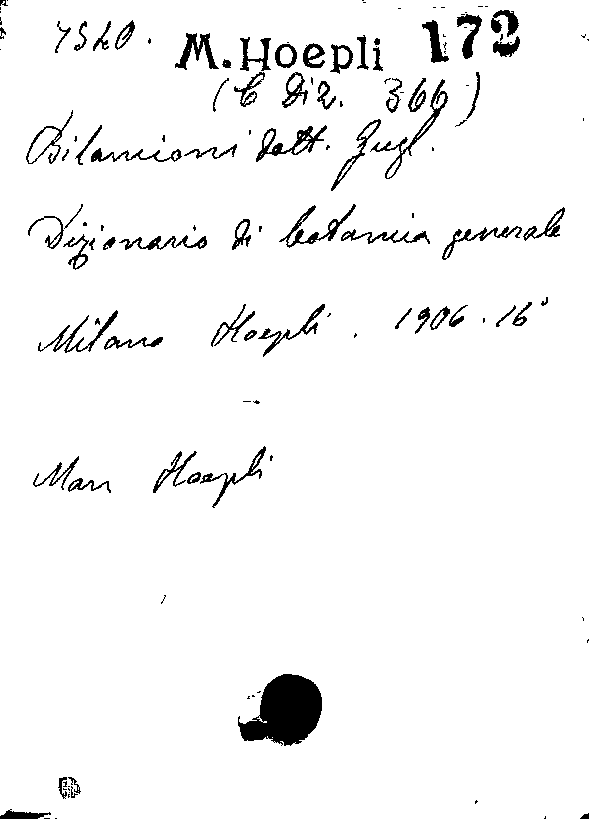 7540. M. Hoepli 172
(C Diz. 366)
Bilancioni dott. Gugl.
Dizionario di botanica generale
Milano Hoepli. 1906. 16°
Man Hoepli